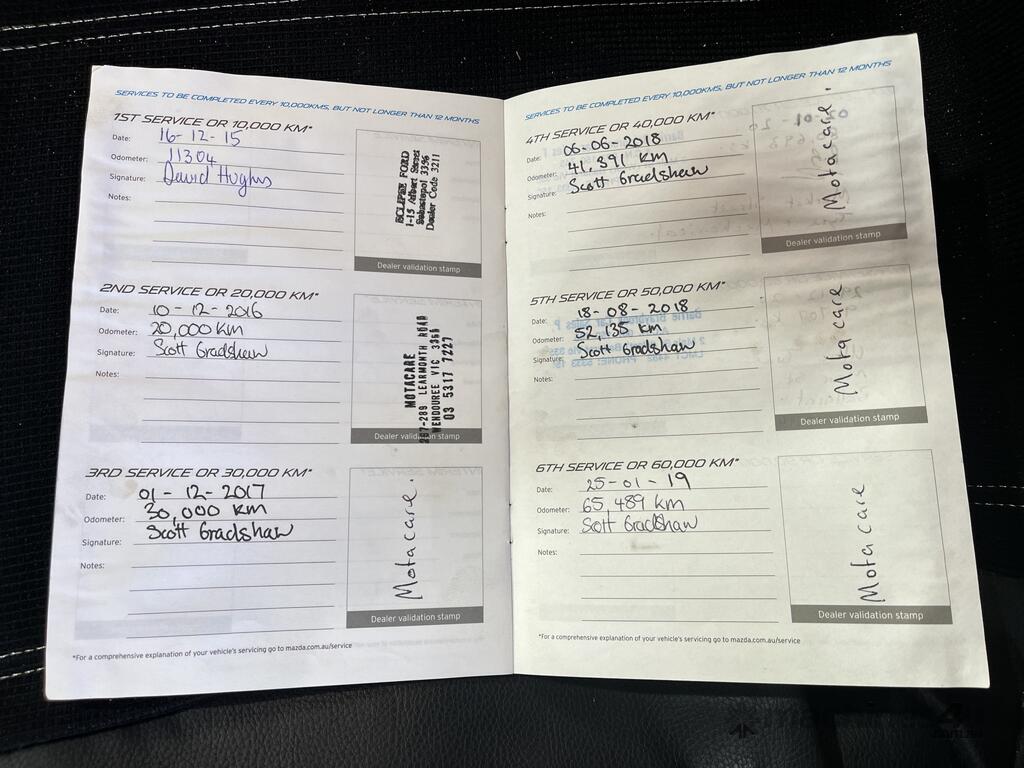 SERVICES TO BE COMPLETED EVERY 10,000KMS, BUT NOT LONGER THAN 12 MONTHS
1ST SERVICE OR 10,000 KM*
Date: 16-12-15
Odometer: 11304
Signature: David Hughes
Notes:
ECLIPSE FORD
1-15 Albert Street
Sebastopol 3356
Dealer Code 3211
Dealer validation stamp
2ND SERVICE OR 20,000 KM*
Date: 10-12-2016
Odometer: 20,000 KM
Signature: Scott Gradshaw
Notes:
MOTACARE
287-289 LEARMONTH ROAD
WENDOUREE VIC 3355
03 5317 7227
Dealer validation stamp
3RD SERVICE OR 30,000 KM*
Date: 01-12-2017
Odometer: 30,000 KM
Signature: Scott Gradshaw
Notes:
Motacare.
Dealer validation stamp
*For a comprehensive explanation of your vehicle's servicing go to mazda.com.au/service
SERVICES TO BE COMPLETED EVERY 10,000KMS, BUT NOT LONGER THAN 12 MONTHS
4TH SERVICE OR 40,000 KM*
Date: 06-06-2018
Odometer: 41,391 KM
Signature: Scott Gradshaw
Notes:
Motacare.
Dealer validation stamp
5TH SERVICE OR 50,000 KM*
Date: 18-08-2018
Odometer: 52,135 KM
Signature: Scott Gradshaw
Notes:
Motacare
Dealer validation stamp
6TH SERVICE OR 60,000 KM*
Date: 25-01-19
Odometer: 65,489 KM
Signature: Scott Gradshaw
Notes:
Motacare
Dealer validation stamp
*For a comprehensive explanation of your vehicle's servicing go to mazda.com.au/service